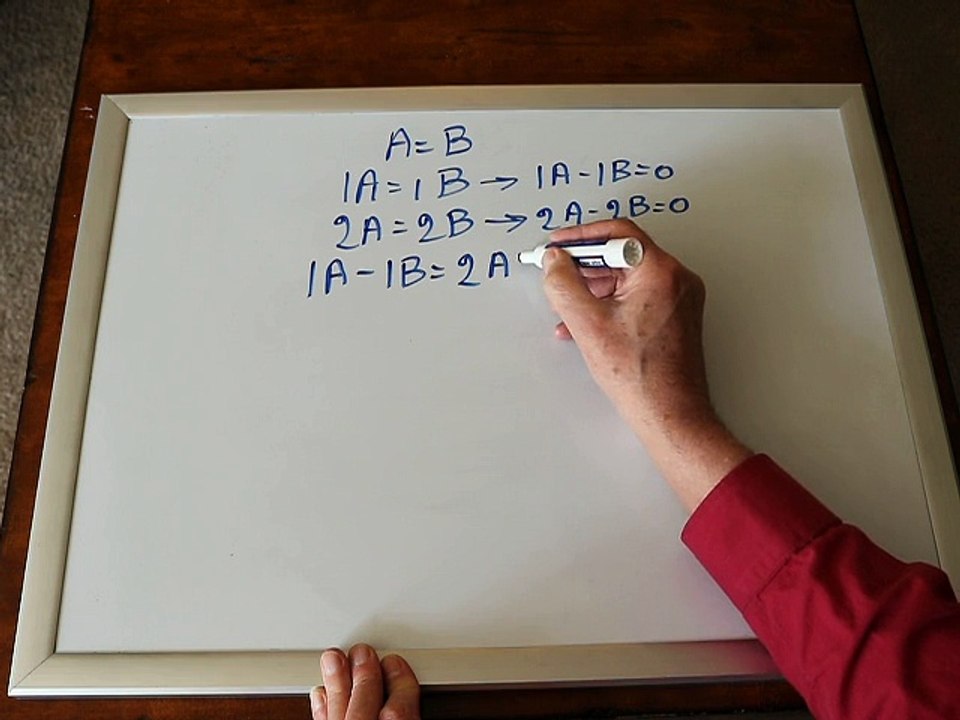 A = B
1A = 1B → 1A - 1B = 0
2A = 2B → 2A - 2B = 0
1A - 1B = 2A